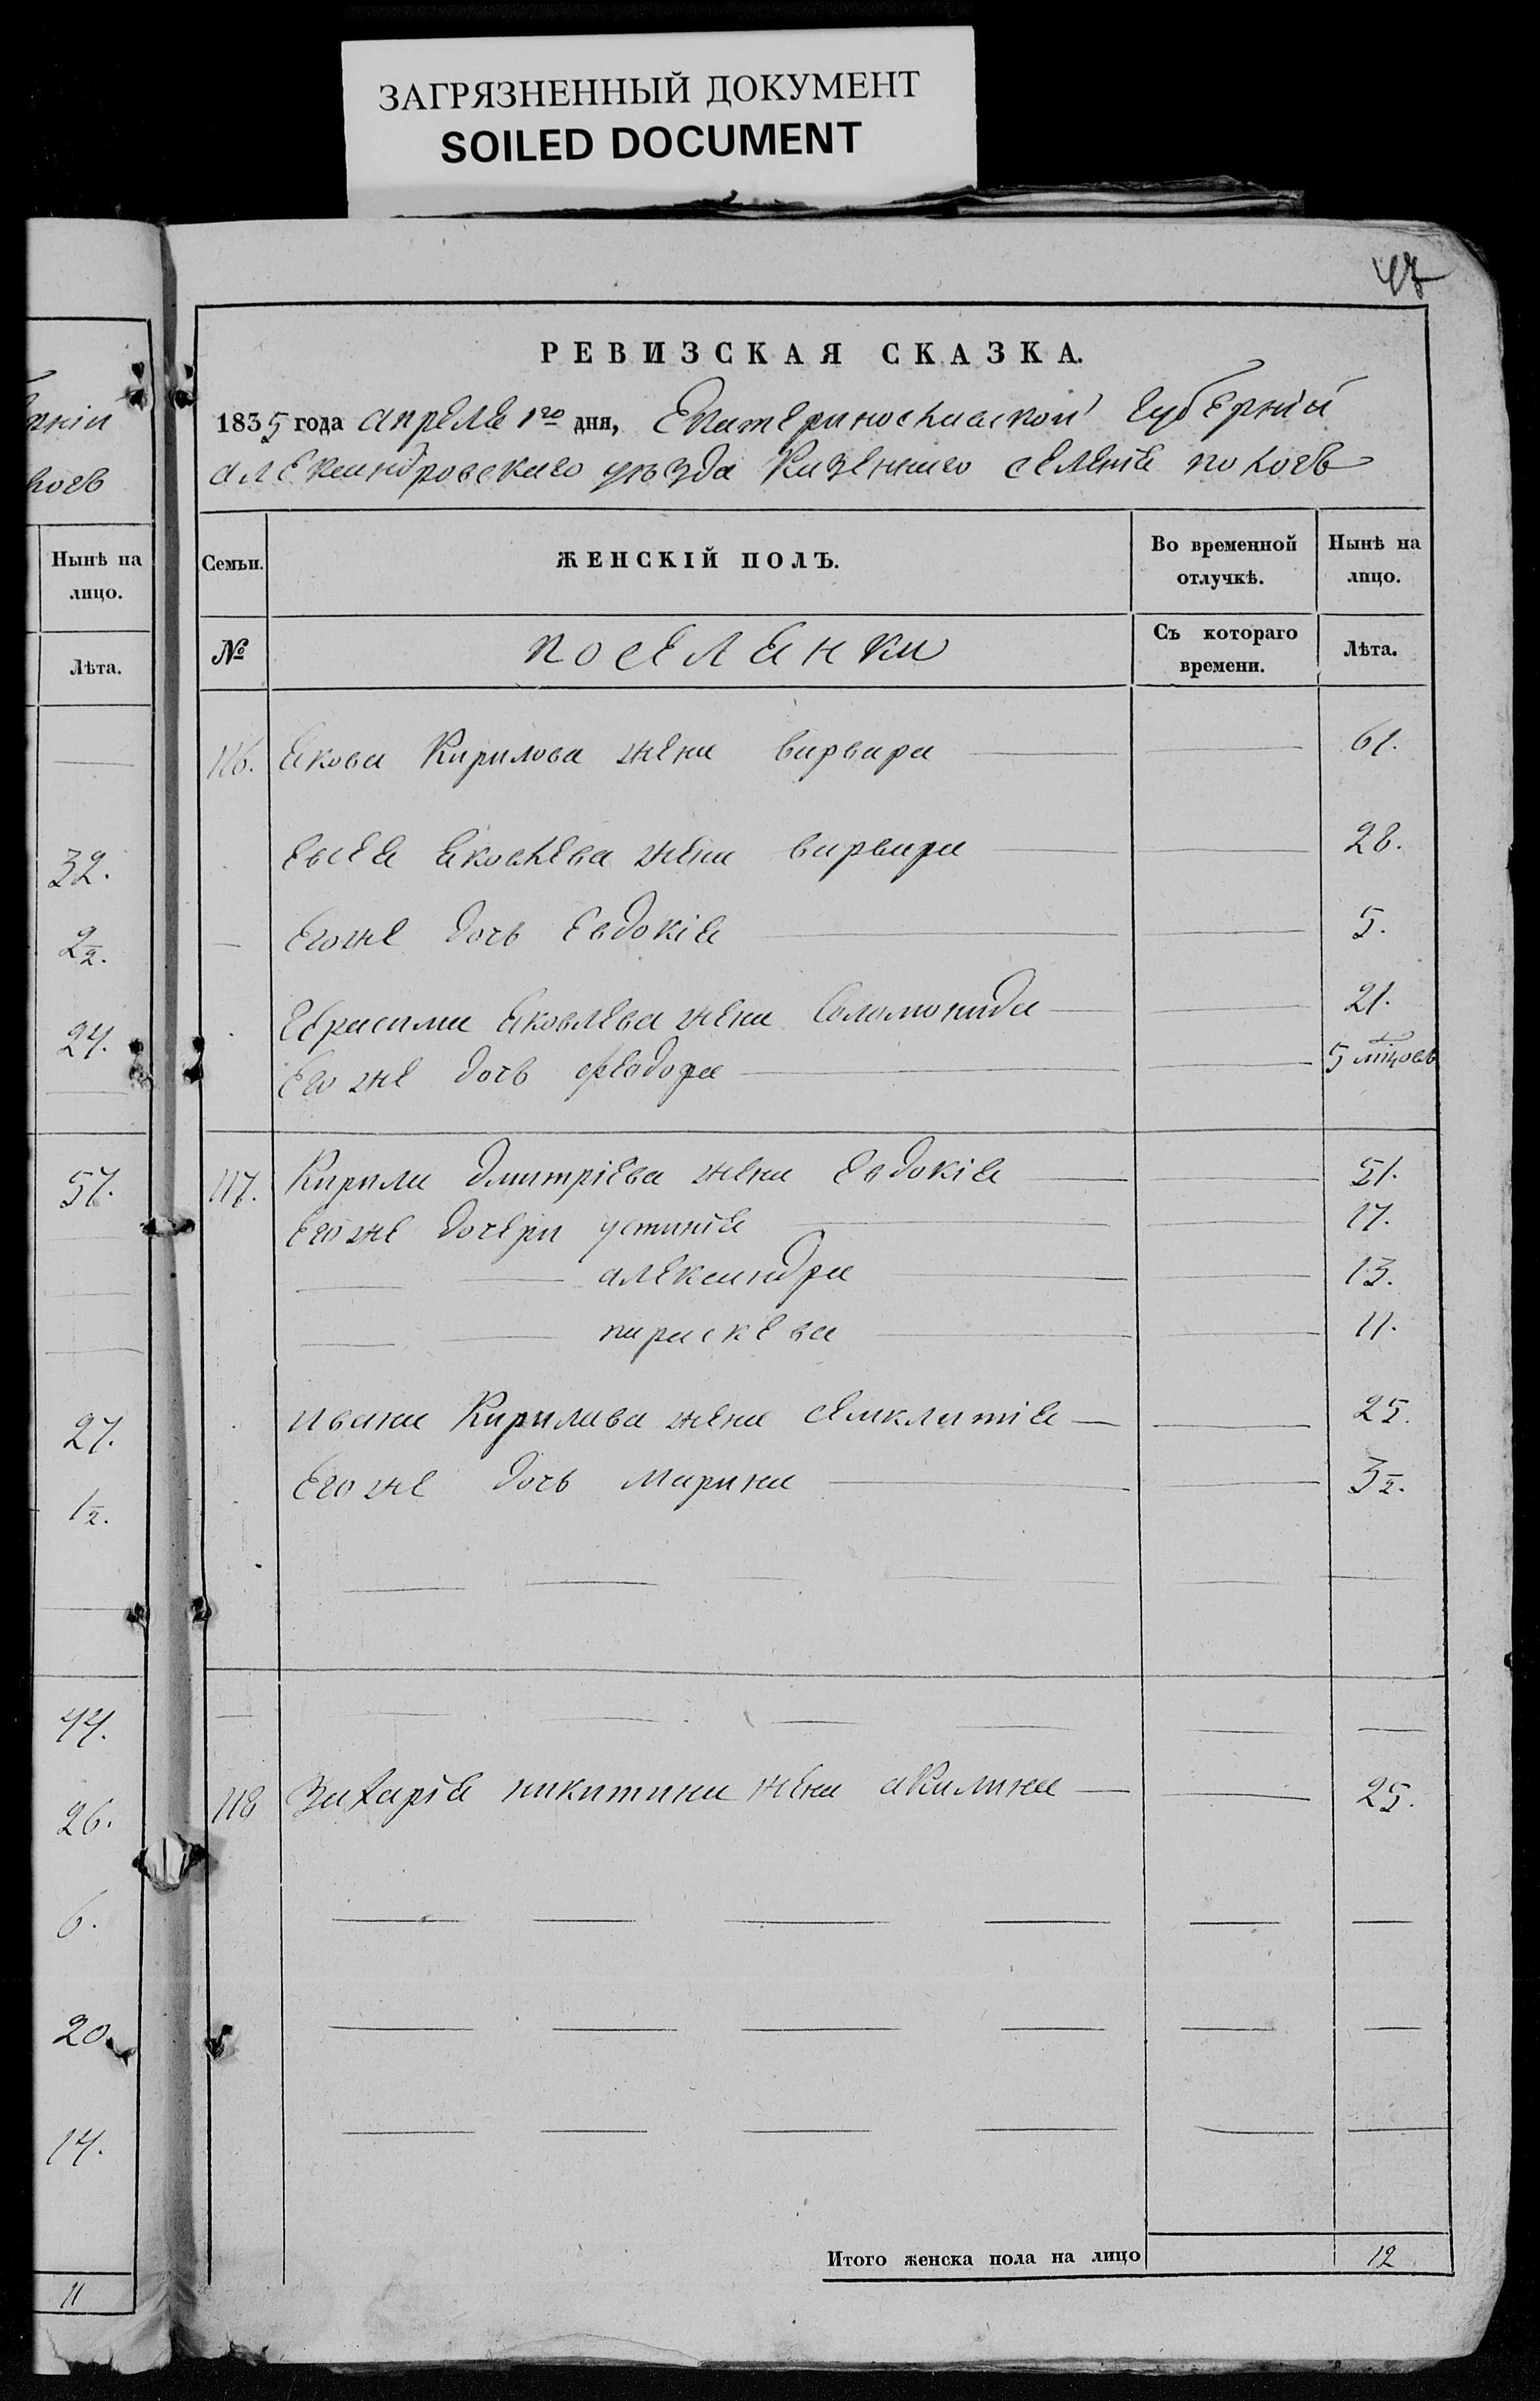 ЗАГРЯЗНЕННЫЙ ДОКУМЕНТ
SOILED DOCUMENT
47
РЕВИЗСКАЯ СКАЗКА.
1835 года апреля 1го дня, Екатеринославской Губернии
александровского уезда Казенного селения
Семьи. ЖЕНСКІЙ ПОЛЪ. Во временной отлучкѣ. Нынѣ на лицо.
№ поселянки Съ котораго времени. Лѣта.
116. Якова Кирилова жена варвара 61.
Евсея Яковлева жена варвара 28.
Егоже дочь Евдокія 5.
Герасима Яковлева жена Соломонида 21.
Его же дочь феодора 5 мцовъ
117. Кирила Дмитріева жена Евдокія 51.
Его же дочери устинія 17.
александра 13.
параскева 11.
ивана Кирилава жена семклитія 25.
Его же дочь марина 3½.
118 Захарія никитина жена акилина 25.
Итого женска пола на лицо 12
Нынѣ на лицо.
Лѣта.
32.
2½.
24.
57.
27.
1½.
44.
26.
6.
20.
14.
11